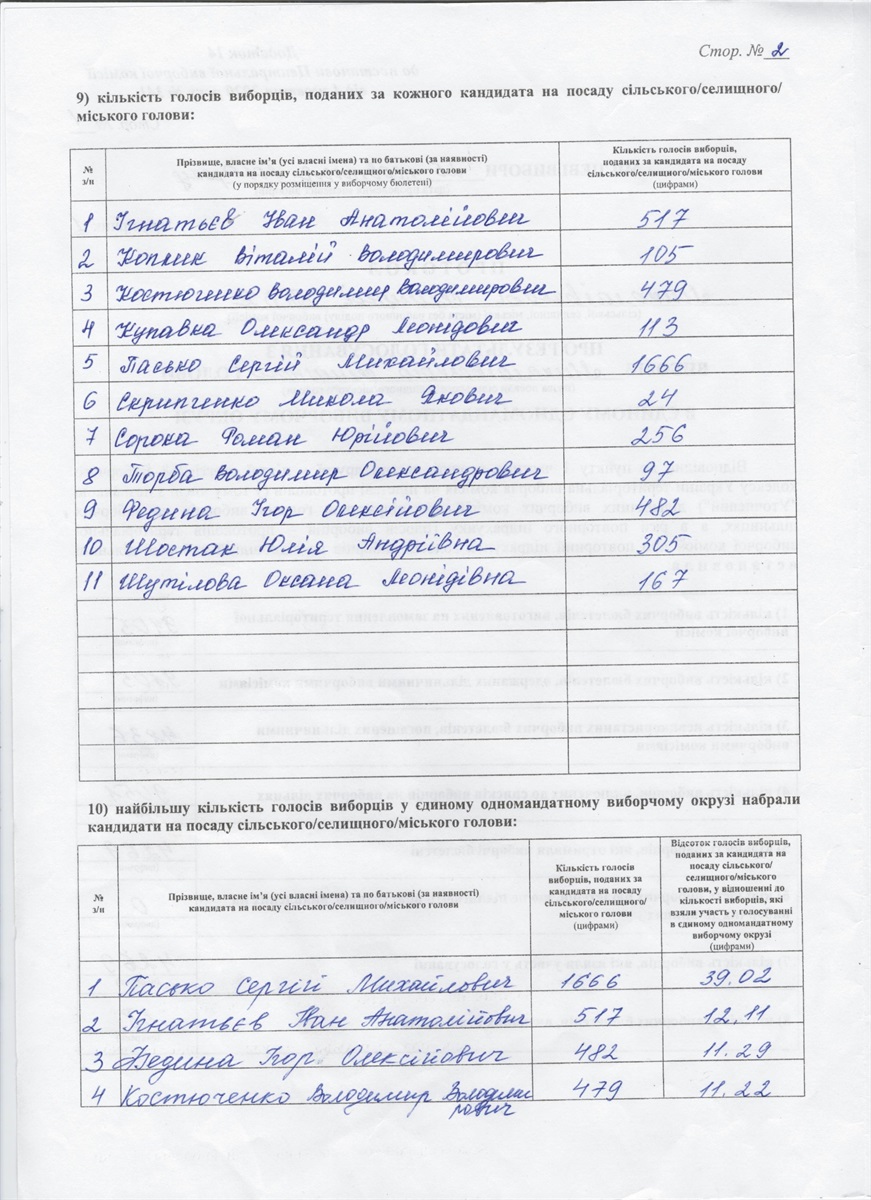 Стор. № 2
9) кількість голосів виборців, поданих за кожного кандидата на посаду сільського/селищного/
міського голови:
№ з/п
Прізвище, власне ім'я (усі власні імена) та по батькові (за наявності)
кандидата на посаду сільського/селищного/міського голови
(у порядку розміщення у виборчому бюлетені)
Кількість голосів виборців,
поданих за кандидата на посаду
сільського/селищного/міського голови
(цифрами)
1 Ігнатьєв Іван Анатолійович 517
2 Коплик Віталій Володимирович 105
3 Костюченко Володимир Володимирович 479
4 Купавка Олександр Леонідович 113
5 Пасько Сергій Михайлович 1666
6 Скрипченко Микола Якович 24
7 Сорока Роман Юрійович 256
8 Торба Володимир Олександрович 97
9 Федина Ігор Олексійович 482
10 Шостак Юлія Андріївна 305
11 Шутілова Оксана Леонідівна 167
10) найбільшу кількість голосів виборців у єдиному одномандатному виборчому окрузі набрали
кандидати на посаду сільського/селищного/міського голови:
№ з/п
Прізвище, власне ім'я (усі власні імена) та по батькові (за наявності)
кандидата на посаду сільського/селищного/міського голови
Кількість голосів
виборців, поданих за
кандидата на посаду
сільського/селищного/
міського голови
(цифрами)
Відсоток голосів виборців,
поданих за кандидата на
посаду сільського/
селищного/міського
голови, у відношенні до
кількості виборців, які
взяли участь у голосуванні
в єдиному одномандатному
виборчому окрузі
(цифрами)
1 Пасько Сергій Михайлович 1666 39.02
2 Ігнатьєв Іван Анатолійович 517 12.11
3 Федина Ігор Олексійович 482 11.29
4 Костюченко Володимир Володими 479 11.22
рович